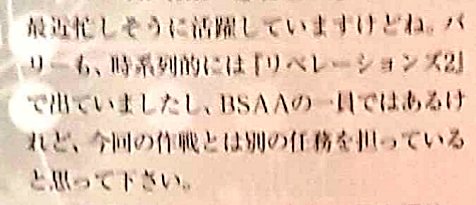 最近忙しそうに活躍していますけどね。バ
リーも、時系列的には『リベレーションズ2』
で出ていましたし、BSAAの一員ではあるけ
れど、今回の作戦とは別の任務を担っている
と思って下さい。